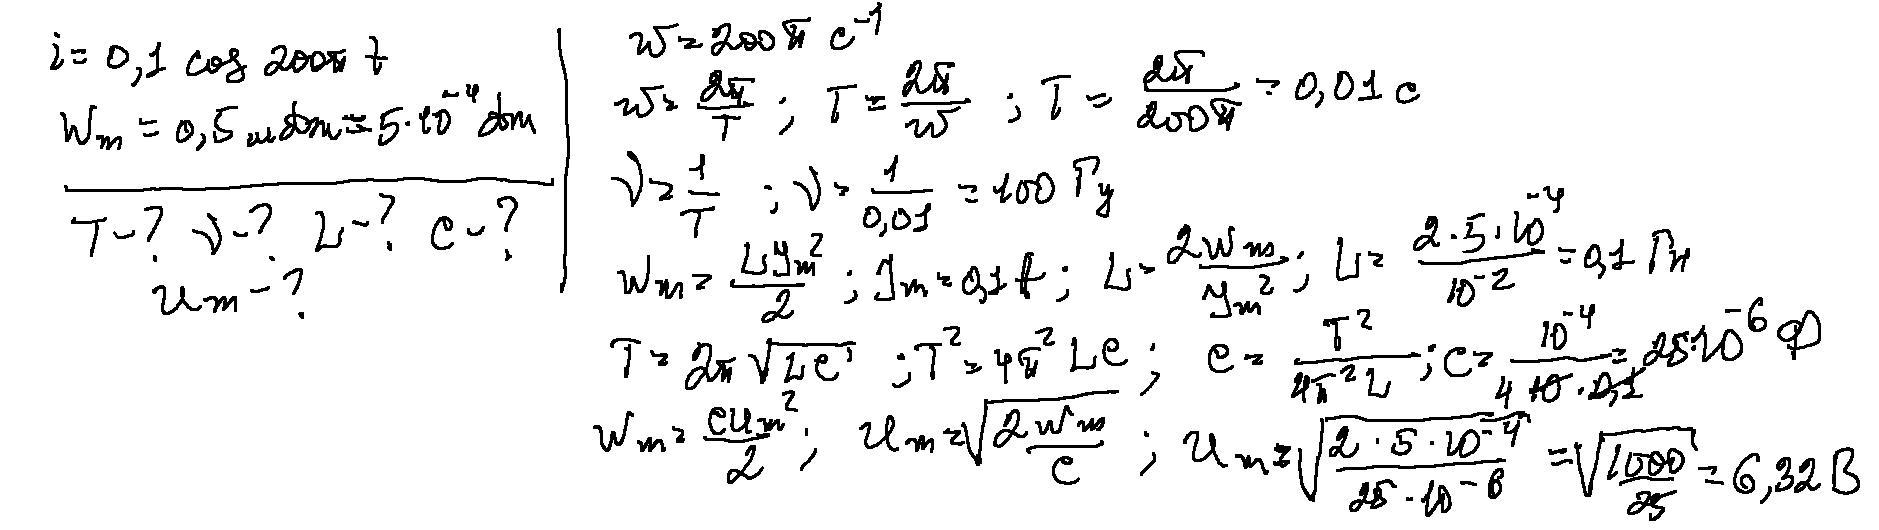 i = 0,1 cos 200π t
Wm = 0,5 мДж = 5·10⁻⁴ Дж
T-? ν-? L-? C-?
Um-?
ω = 200π с⁻¹
ω = 2π/T ; T = 2π/ω ; T = 2π/200π = 0,01 с
ν = 1/T ; ν = 1/0,01 = 100 Гц
Wm = LJm²/2 ; Jm = 0,1 A ; L = 2Wm/Jm² ; L = 2·5·10⁻⁴/10⁻² = 0,1 Гн
T = 2π√LC ; T² = 4π²LC ; C = T²/4π²L ; C = 10⁻⁴/4·10·0,1 = 25·10⁻⁶ Ф
Wm = CUm²/2 ; Um = √2Wm/C ; Um = √2·5·10⁻⁴/25·10⁻⁶ = √1000/25 = 6,32 В